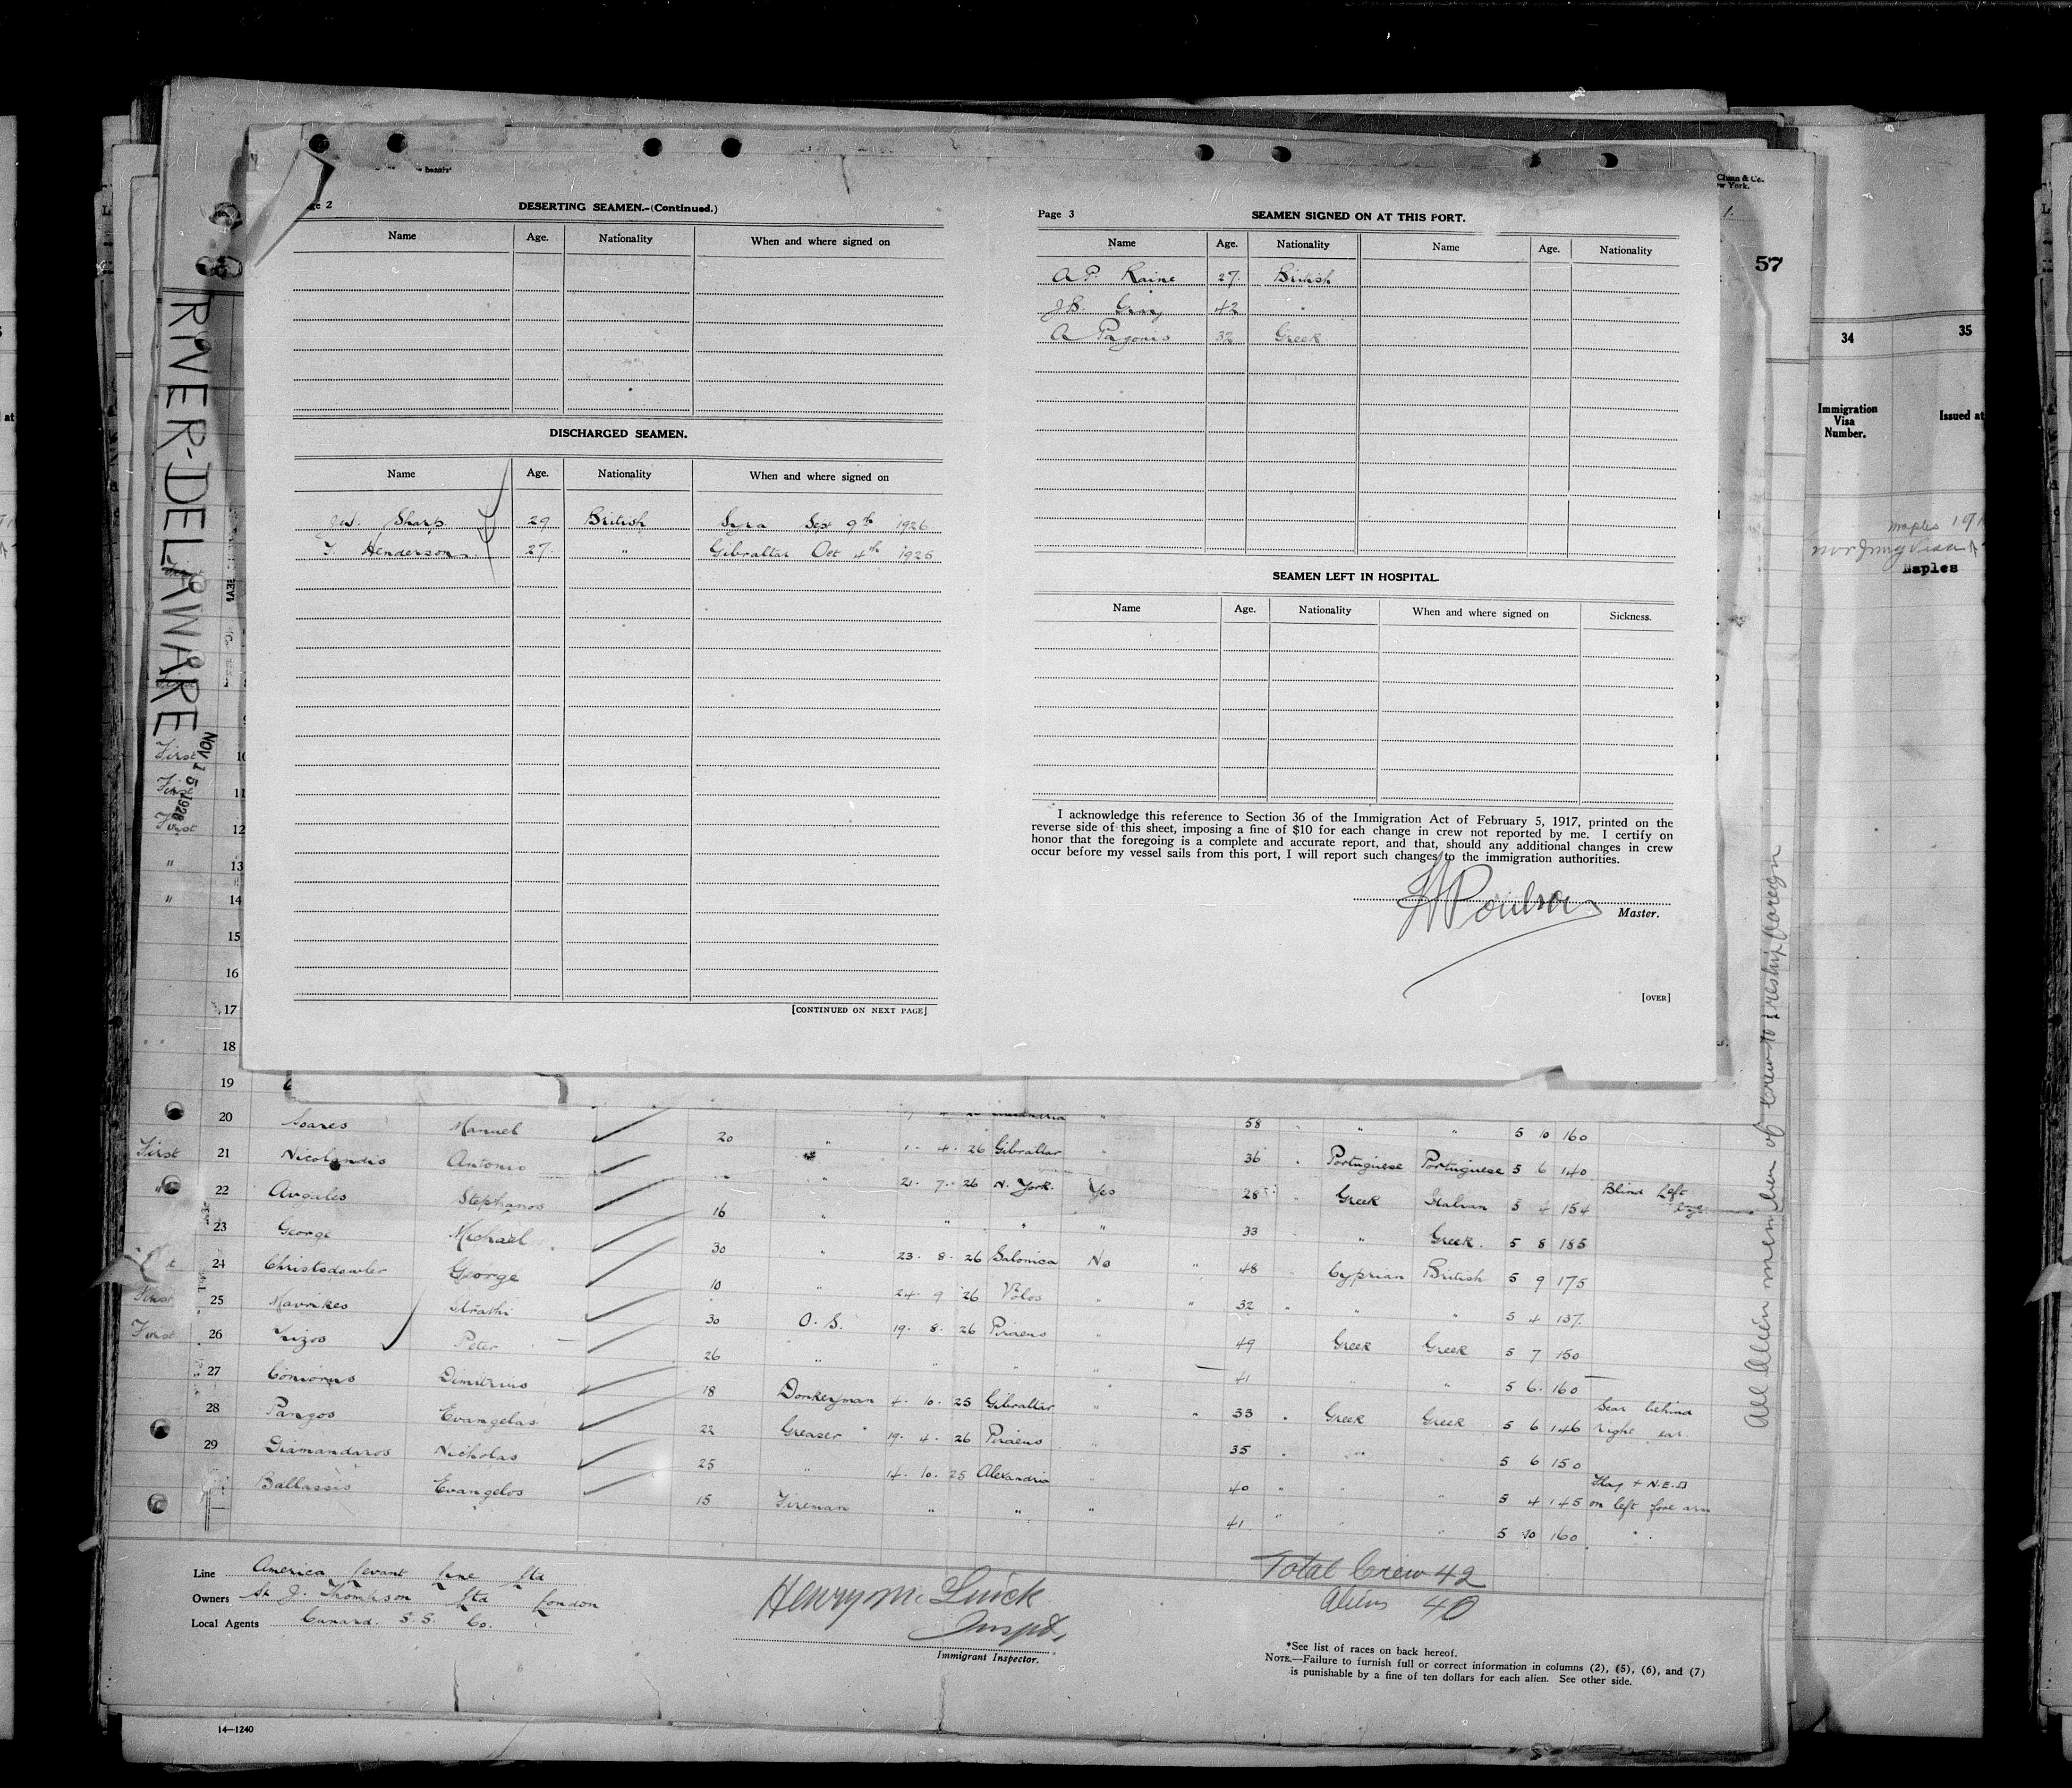 RIVER DELAWARE
NOV 15 1926
Page 2
DESERTING SEAMEN.-(Continued.)
Name Age. Nationality When and where signed on
DISCHARGED SEAMEN.
Name Age. Nationality When and where signed on
J.W. Sharp 29 British Syra Sept 9th 1926
T. Henderson 27 " Gibraltar Oct 4th 1925
[CONTINUED ON NEXT PAGE]
Page 3
SEAMEN SIGNED ON AT THIS PORT.
Name Age. Nationality Name Age. Nationality
A P. Raine 27. British
J B. 42 "
A Pagonis 32 Greek
SEAMEN LEFT IN HOSPITAL.
Name Age. Nationality When and where signed on Sickness.
I acknowledge this reference to Section 36 of the Immigration Act of February 5, 1917, printed on the
reverse side of this sheet, imposing a fine of $10 for each change in crew not reported by me. I certify on
honor that the foregoing is a complete and accurate report, and that, should any additional changes in crew
occur before my vessel sails from this port, I will report such changes to the immigration authorities.
Poulson
Master.
[OVER]
57
34 35
Immigration
Visa
Number.
Issued at
Naples
First 10
First 11
First 12
" 13
" 14
15
16
17
18
19
20 Soares Manuel 20 " 1. 4. 26 Gibraltar " 36 " Portuguese Portuguese 5 6 140
First 21 Nicolandis Antonio " 21. 7. 26 N. York. Yes 28 " Greek Italian 5 4 154 Blind Left eye
" 22 Argules Stephanos 16 " " " " 33 " Greek. 5 8 185
23 George Michael 30 " 23. 8. 26 Salonica No " 48 Cyprian British 5 9 175
24 Christodowler George 10 " 24. 9 26 Volos " " 32 " " " 5 4 137.
First 25 Mavrikes Strathi 30 O. S. 19. 8. 26 Piraeus " 49 Greek Greek 5 7 150
First 26 Peter 26 " " " " 41 " " 5 6. 160
27 Coniorus Dimitrius 18 Donkeyman 4. 10. 25 Gibraltar " " 33 " Greek Greek 5 6 146 Scar behind right ear.
28 Pangos Evangelos 22 Greaser 19. 4. 26 Piraeus " 35 " " 5 6 150
29 Diamandaros Nicholas 25 " 14. 10. 25 Alexandria " 40 " " " 5 4 145 Flag + N.E.D on left fore arm
Baltassis Evangelos 15 Fireman " " " 41 " " " 5 10 160
All Alien members of crew to reship foreign
Line America Levant Line Ltd
Owners St J. Thompson Ltd London
Local Agents Cunard. S. S. Co.
Henry M. Luick
Inspt.
Immigrant Inspector.
Total Crew 42
Aliens 40
*See list of races on back hereof.
NOTE.—Failure to furnish full or correct information in columns (2), (5), (6), and (7)
is punishable by a fine of ten dollars for each alien. See other side.
14—1240